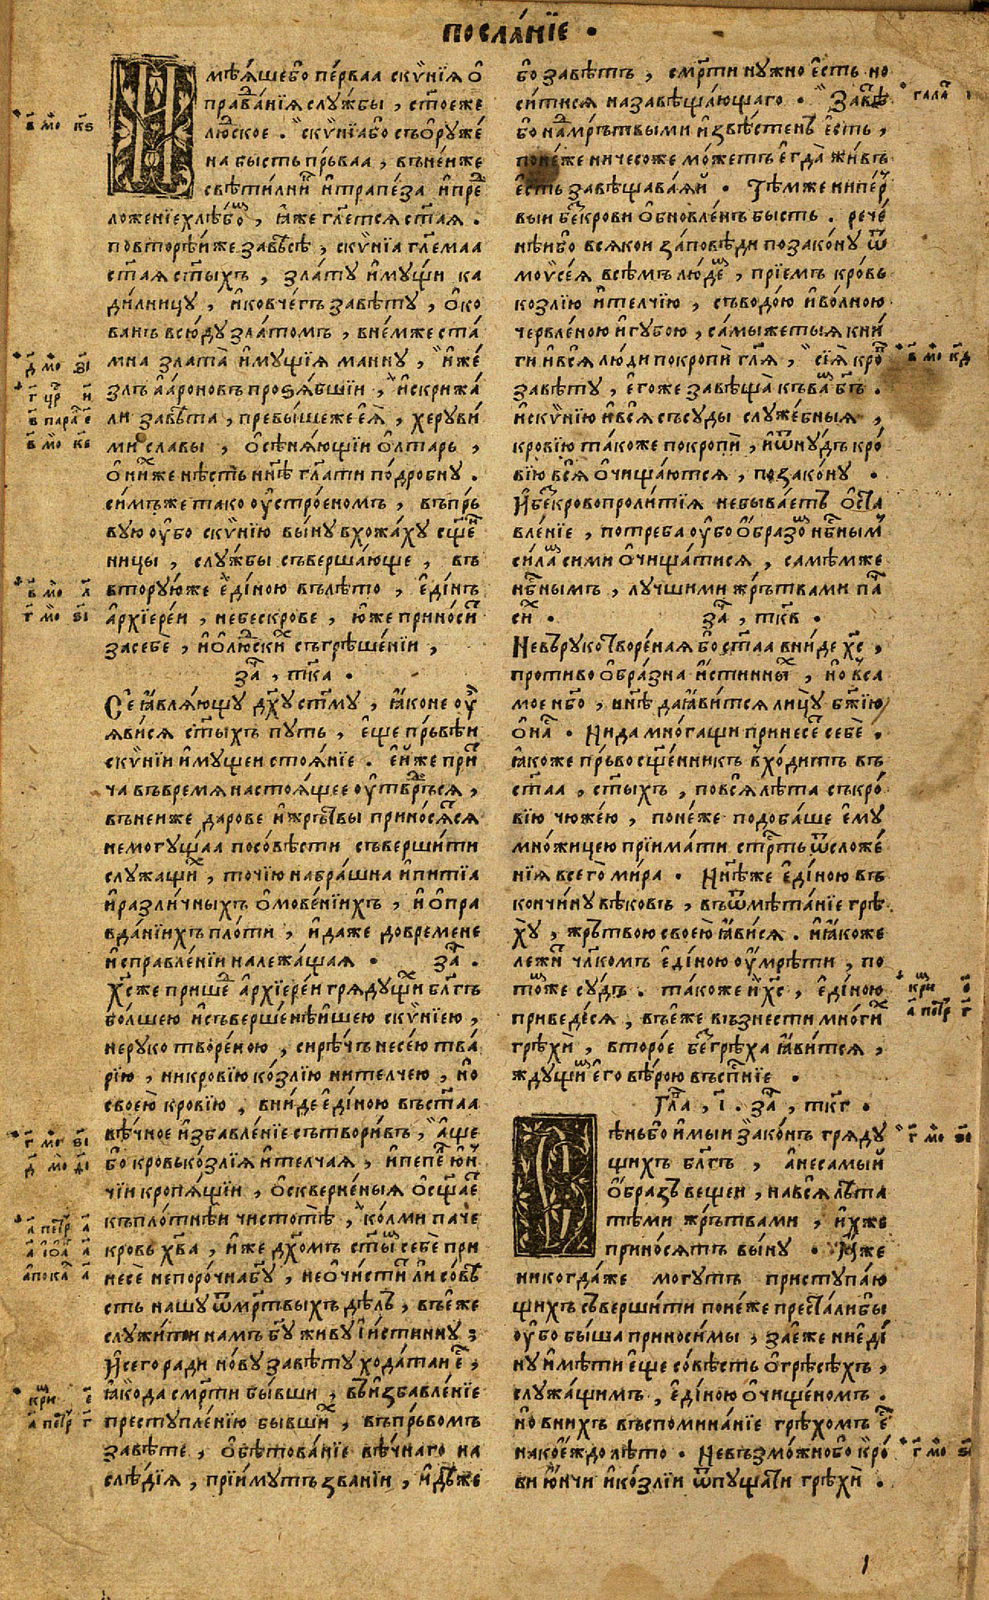 посла́нїе .
И
мѣѧ́шебо пе́рваа скѵ́нїѧ о҆
правда́нїѧ слꙋ́жбы , ст҃оеже
лю́дское . скѵ́нїабо съѡрꙋже́
на бысть пръ́ваа , въне́йже
свѣти́лник и҆трапе́за и҆пре́д
ложенїехлѣ́бом , ꙗ҆́же гл҃етсѧ ст҃аѧ .
повторѣ́йже завѣсѣ , скѵ́нїа гл҃емаа
ст҃аѧ ст҃ыхъ , зла́тꙋ и҆мꙋ́щи ка
ди́лницꙋ , и҆ковче́гъ завѣ́тꙋ , о҆ко
ва́нъ всю́дꙋ зла́томъ , вне́мже ста́
мна злата̀ и҆мꙋ́щїѧ ма́ннꙋ , и҆же́
злъ а҆аро́новъ прозѧ́бшїи , и҆скрижа́
ли завѣ́та , превы́шеже е҆ѧ̀ , херꙋви́
ми сла́вы , о҆сѣнѧ́ющїи о҆лта́рь ,
о҆ни́хже нѣ́сть нн҃ѣ гл҃ати подро́бнꙋ .
си́мъже та́ко оу҆стро́еномъ , въпръ́
вꙋю оу҆́бо скѵ́нїю вы́нꙋ вхожа́хꙋ сщ҃е́н
ницы , слꙋ́жбы съверша́юще , въ
вторꙋ́юже е҆ди́ною влѣ́то , е҆ди́нъ
а҆рхїере́й , небескро́ве , ю҆́же прино́сит
засебѐ , и҆о҆лю́дских съгрѣше́нїи ,
за҃ , тк҃а .
Сѐ ꙗ҆влѧ́ющꙋ дх҃ꙋ ст҃мꙋ , ꙗ҆́коне оу҆̀
ꙗ҆ви́сѧ ст҃ыхъ пꙋть , е҆ще пръ́вѣи
скѵ́нїи и҆мꙋ́щеи стоѧ́нїе . е҆́йже при́т
ча въвре́мѧ настоѧ́щее оу҆тврьди́сѧ ,
въне́йже да́рове и҆же́рьтвы прино́сѧтсѧ
немогꙋ́щаа посо́вѣсти съверши́ти
слꙋжа́щих , то́чїю набра́шна и҆питїа
и҆разли́чныхъ о҆мове́нїихъ , и҆о҆пра
вда́нїихъ пло́ти , и҆да́же довремене
и҆справле́нїи належа́щаѧ . за҃ .
Хс҃же прише́д а҆рхїере́и грѧдꙋ́щих бл҃гъ
бо́лшею и҆съверше́нѣйшею скѵ́нїею ,
нерꙋкотворе́ною , си́рѣчъ несе́ю тва́
рїю , никро́вїю ко́злїю нителчею , но
свое́ю кро́вїю , вни́де е҆ди́ною въст҃аа
вѣ́чное и҆збавле́нїе сътвори́въ , а҆́ще
бо кро́вь ко́злїѧ и҆те́лчаѧ , и҆пе́пел ю҆́н
чїи кропѧ́щїи , о҆скверне́ныѧ о҆сщ҃ает
къпло́тнѣи чистотѣ̀ , ко́лми па́че
кро́вь хв҃а , и҆́же дх҃омъ ст҃ым себѐ при
несѐ непоро́чна бг҃ꙋ , и҆о҆чи́стит ли со́вѣ
сть на́шꙋ ѿме́ртвыхъ дѣ́лъ , въе҆́же
слꙋжи́ти на́мъ бг҃ꙋ жи́вꙋ и҆и҆́стиннꙋ ;
И҆сего́ ради но́вꙋ завѣ́тꙋ хода́таи е҆́ст ,
ꙗ҆́кода сме́рти бы́вши , въи҆збавле́нїе
престꙋпле́нїю бы́вших , въпръ́вомъ
завѣ́те , о҆бѣтова́нїе вѣ́чнаго на
слѣ́дїѧ , прїи́мꙋтъ зва́нїи , и҆дѣ́же
бо завѣ́тъ , сме́рти нꙋ́жно е҆́сть но
си́тисѧ назавѣща́ющаго . Завѣ́т
бо на́дмръ́твыми и҆звѣ́стенъ е҆́сть ,
поне́же ничесо́же мо́жетъ е҆гда̀ жи́въ
е҆́сть завѣщава́ѧй . Тѣ́мже нипе́р
выи без̾кро́ви о҆бновле́нъ бы́сть . рече́
нѣйбо всѧ́кои за́повѣди позако́нꙋ ѿ
моѵсе́ѧ всѣ́мъ лю́дем , прїе́мъ кро́вь
ко́злїю и҆те́лчїю , съводо́ю и҆во́лною
червле́ною и҆гꙋ́бою , са́мыжетыѧ кни́
ги и҆всѧ̀ лю́ди покропѝ гл҃ѧ , сїѧ̀ кро́вь
завѣ́тꙋ , е҆го́же завѣща̀ къва́м бг҃ъ .
и҆скѵ́нїю и҆всѧ̀ съсꙋ́ды слꙋже́бныѧ ,
кро́вїю та́коже покропѝ , и҆ѿнꙋ́дъ кро́
вїю всѧ̀ о҆чища́ютсѧ , позако́нꙋ .
И҆без̾кровопроли́тїѧ небыва́етъ о҆ста
вле́нїе , потре́ба оу҆́бо о҆́бразом нб҃ным
си́лам си́ми о҆чища́тисѧ , саме́мже
нб҃нымъ , лꙋ́чшими же́рътвами па́
сих . за҃ , тк҃в .
Невърꙋкотворе́наѧ бо ст҃аа вни́де хс҃ ,
противоо҆бра́зна и҆́стинных , но въса
мое нб҃о , нн҃ѣ даꙗ҆ви́тсѧ лицꙋ̀ бж҃їю
о҆на́с . Нида мно́гащи принесе́т себѐ .
ꙗ҆́коже пръвосщ҃е́нникъ вхо́дитъ въ
ст҃аа , ст҃ыхъ , повсѧ̀ лѣ́та съкро́
вїю чюже́ю , поне́же подоба́ше е҆мꙋ̀
мно́жицею прїима́ти стр҃ть ѿсложе́
нїѧ всего̀ ми́ра . Нн҃ѣже е҆ди́ною въ
кончи́нꙋ вѣко́въ , въѿмѣта́нїе грѣ
хꙋ̀ , же́рътвою свое́ю ꙗ҆ви́сѧ . и҆ꙗ҆́коже
лежи́т чл҃комъ е҆ди́ною оу҆мрѣ́ти , по
то́мже сꙋ́дъ . та́коже и҆хс҃ , е҆ди́ною
приведе́сѧ , въе҆́же възнести́ мно́гих
грѣхѝ , второ́е без̾грѣха ꙗ҆ви́тсѧ ,
ждꙋ́щим е҆го̀ вѣ́рою въсп҃нїе .
Гл҃а , і҃ . за҃ , тк҃г .
С
ѣ́ньбо и҆мы́и зако́нъ грѧдꙋ́
щихъ бл҃гъ , а҆несамы́й
о҆́бразъ веще́и , навсѧ̀ лѣта
тѣ́ми же́рътвами , и҆́хже
прино́сѧтъ вы́нꙋ . Ꙗ҆́же
никогда́же мо́гꙋтъ пристꙋпа́ю
щихъ съверши́ти поне́же преста́либы
оу҆́бо бы́ша приноси́мы , зае҆́же ниеди́
нꙋ и҆мѣ́ти е҆ще со́вѣсть о҆грѣсѣ́хъ ,
слꙋжа́щимъ , е҆ди́ною о҆чище́номъ .
но вни́хъ въспомина́нїе грѣхо́мъ е҆́ст
нако́еждо лѣ́то . Невъзмо́жнобо кро́
ви ю҆́нчи и҆ко́злїи ѿпꙋща́ти грѣхѝ .